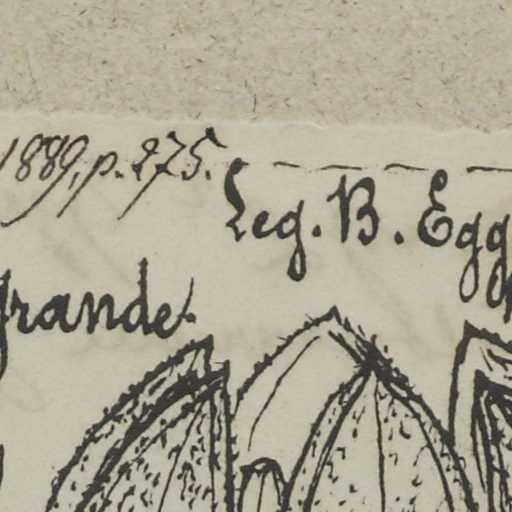 1889, p. 275.
Leg. B. Egg
grande.